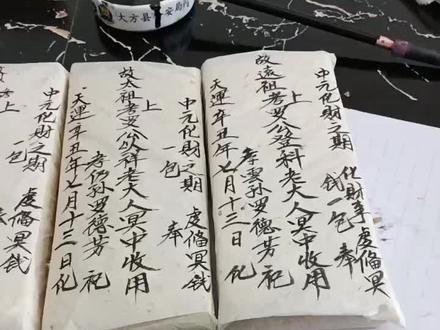 大方县
中元化財之期
化財 虔備冥
錢一包 奉
上
故遠祖考罗公登科老大人冥中收用
孝雲孫罗德芳 祝
天運辛丑年七月十三日化
中元化財之期 虔備冥钱
一包 奉
上
故太祖考罗公以祥老大人冥中收用
孝仍孙罗德芳 祝
天運辛丑年七月十三日化
中元化財之期 虔備冥钱
一包
上